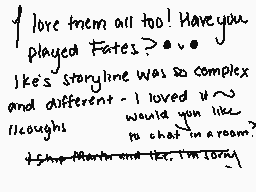 I love them all too! Have you
played Fates? •v•
Ike's storyline was so complex
and different - I loved it ~
//coughs
would you like
to chat in a room?
I ship Marth and Ike, I'm sorry